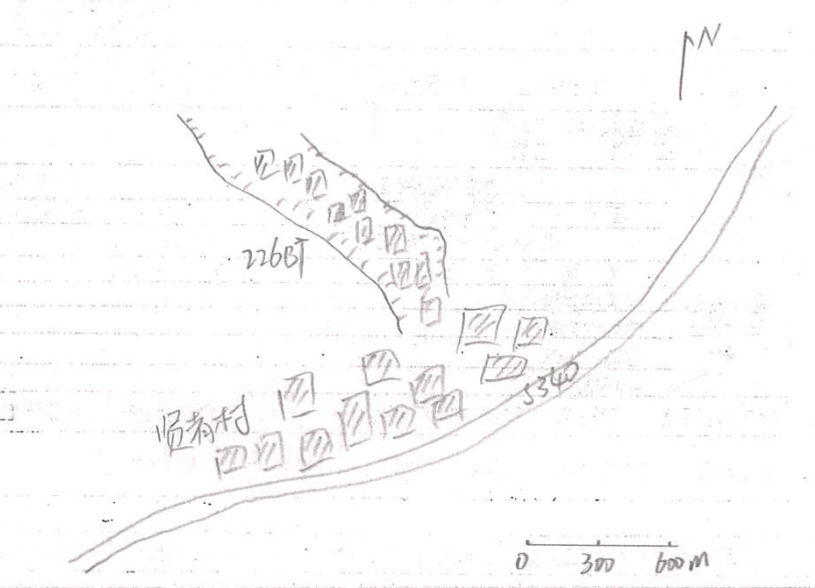 N
226BT
S340
贤者村
0 300 600m